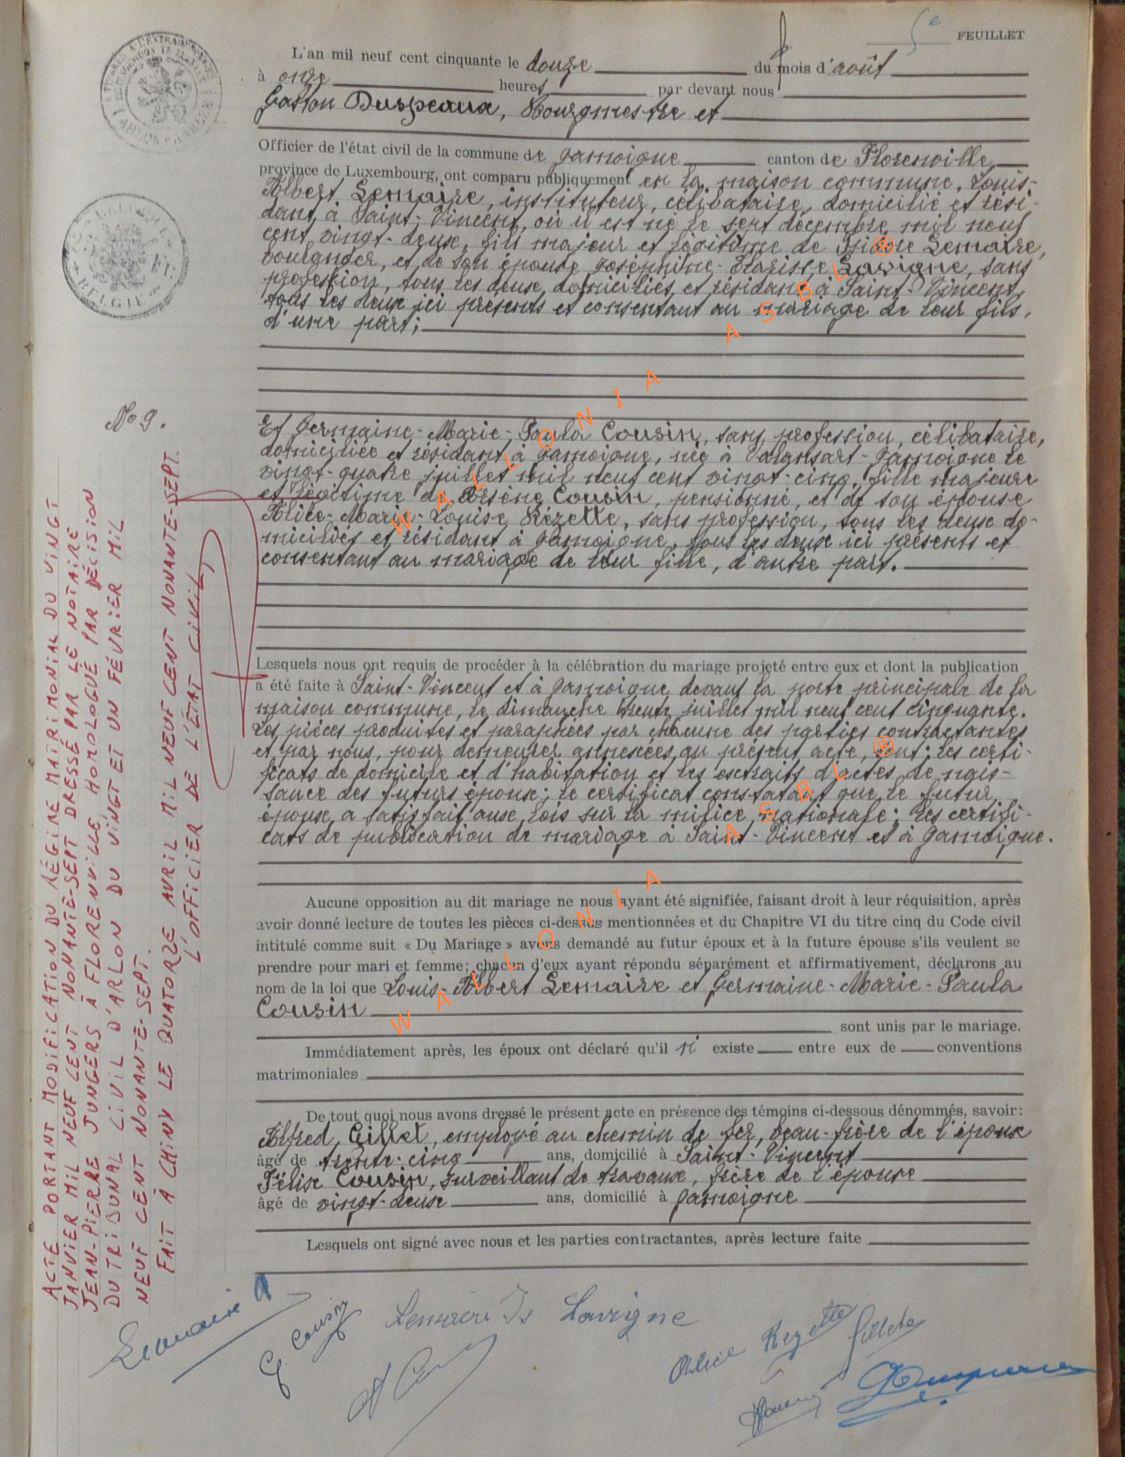 5e FEUILLET
L'an mil neuf cent cinquante le douze du mois d'août
à onze heures par devant nous
Gaston Duspeaux, Bourgmestre et
Officier de l'état civil de la commune de Jamoigne canton de Florenville
province de Luxembourg, ont comparu publiquement en la maison commune, Louis-
Albert Lemaire, instituteur, célibataire, domicilié et rési-
dant à Saint-Vincent, où il est né le sept décembre mil neuf
cent vingt-deux, fils majeur et légitime de Isidore Lemaire,
bourgmestre, et de son épouse Joséphine-Clarisse Lavigne, sans
profession, tous les deux, domiciliés et résidant à Saint-Vincent,
tous les deux ici présents et consentant au mariage de leur fils,
d'une part;
No 9.
Et Germaine-Marie-Paula Cousin, sans profession, célibataire,
domiciliée et résidant à Jamoigne, née à Valansart-Jamoigne le
vingt-quatre juillet mil neuf cent vingt-cinq, fille majeure
et légitime de Arsène Cousin, pensionné, et de son épouse
Alice-Marie-Louise Rézette, sans profession, tous les deux do-
miciliés et résidant à Jamoigne, tous les deux ici présents et
consentant au mariage de leur fille, d'autre part.
Lesquels nous ont requis de procéder à la célébration du mariage projeté entre eux et dont la publication
a été faite à Saint-Vincent et à Jamoigne devant la porte principale de la
maison commune, le dimanche trente juillet mil neuf cent cinquante.
Les pièces produites et paraphées par chacune des parties contractantes
et par nous, pour demeurer annexées au présent acte, sont: les certi-
ficats de domicile et d'habitation et les extraits d'actes de nais-
sance des futurs époux; le certificat constatant que le futur
époux a satisfait aux lois sur la milice nationale; les certifi-
cats de publication de mariage à Saint-Vincent et à Jamoigne.
Aucune opposition au dit mariage ne nous ayant été signifiée, faisant droit à leur réquisition, après
avoir donné lecture de toutes les pièces ci-dessus mentionnées et du Chapitre VI du titre cinq du Code civil
intitulé comme suit « Du Mariage » avons demandé au futur époux et à la future épouse s'ils veulent se
prendre pour mari et femme; chacun d'eux ayant répondu séparément et affirmativement, déclarons au
nom de la loi que Louis-Albert Lemaire et Germaine-Marie-Paula
Cousin
sont unis par le mariage.
Immédiatement après, les époux ont déclaré qu'il n' existe entre eux de conventions
matrimoniales
De tout quoi nous avons dressé le présent acte en présence des témoins ci-dessous dénommés, savoir:
Alfred, Gillet, employé au chemin de fer, beau-frère de l'époux
âgé de trente-cinq ans, domicilié à Saint-Vincent
Félix Cousin, surveillant de travaux, frère de l'épouse
âgé de vingt-deux ans, domicilié à Jamoigne
Lesquels ont signé avec nous et les parties contractantes, après lecture faite
ACTE PORTANT MODIFICATION DU RÉGIME MATRIMONIAL DU VINGT
JANVIER MIL NEUF CENT NONANTE-SEPT DRESSÉ PAR LE NOTAIRE
JEAN-PIERRE JUNGERS À FLORENVILLE HOMOLOGUÉ PAR DÉCISION
DU TRIBUNAL CIVIL D'ARLON DU VINGT ET UN FÉVRIER MIL
NEUF CENT NONANTE-SEPT.
FAIT À CHINY LE QUATORZE AVRIL MIL NEUF CENT NONANTE-SEPT.
L'OFFICIER DE L'ÉTAT CIVIL,
Lemaire A
G. Cousin
Lemaire Is Lavigne
Alice Rezette
Gillet
WALLONIA ASBL
WALLONIA ASBL